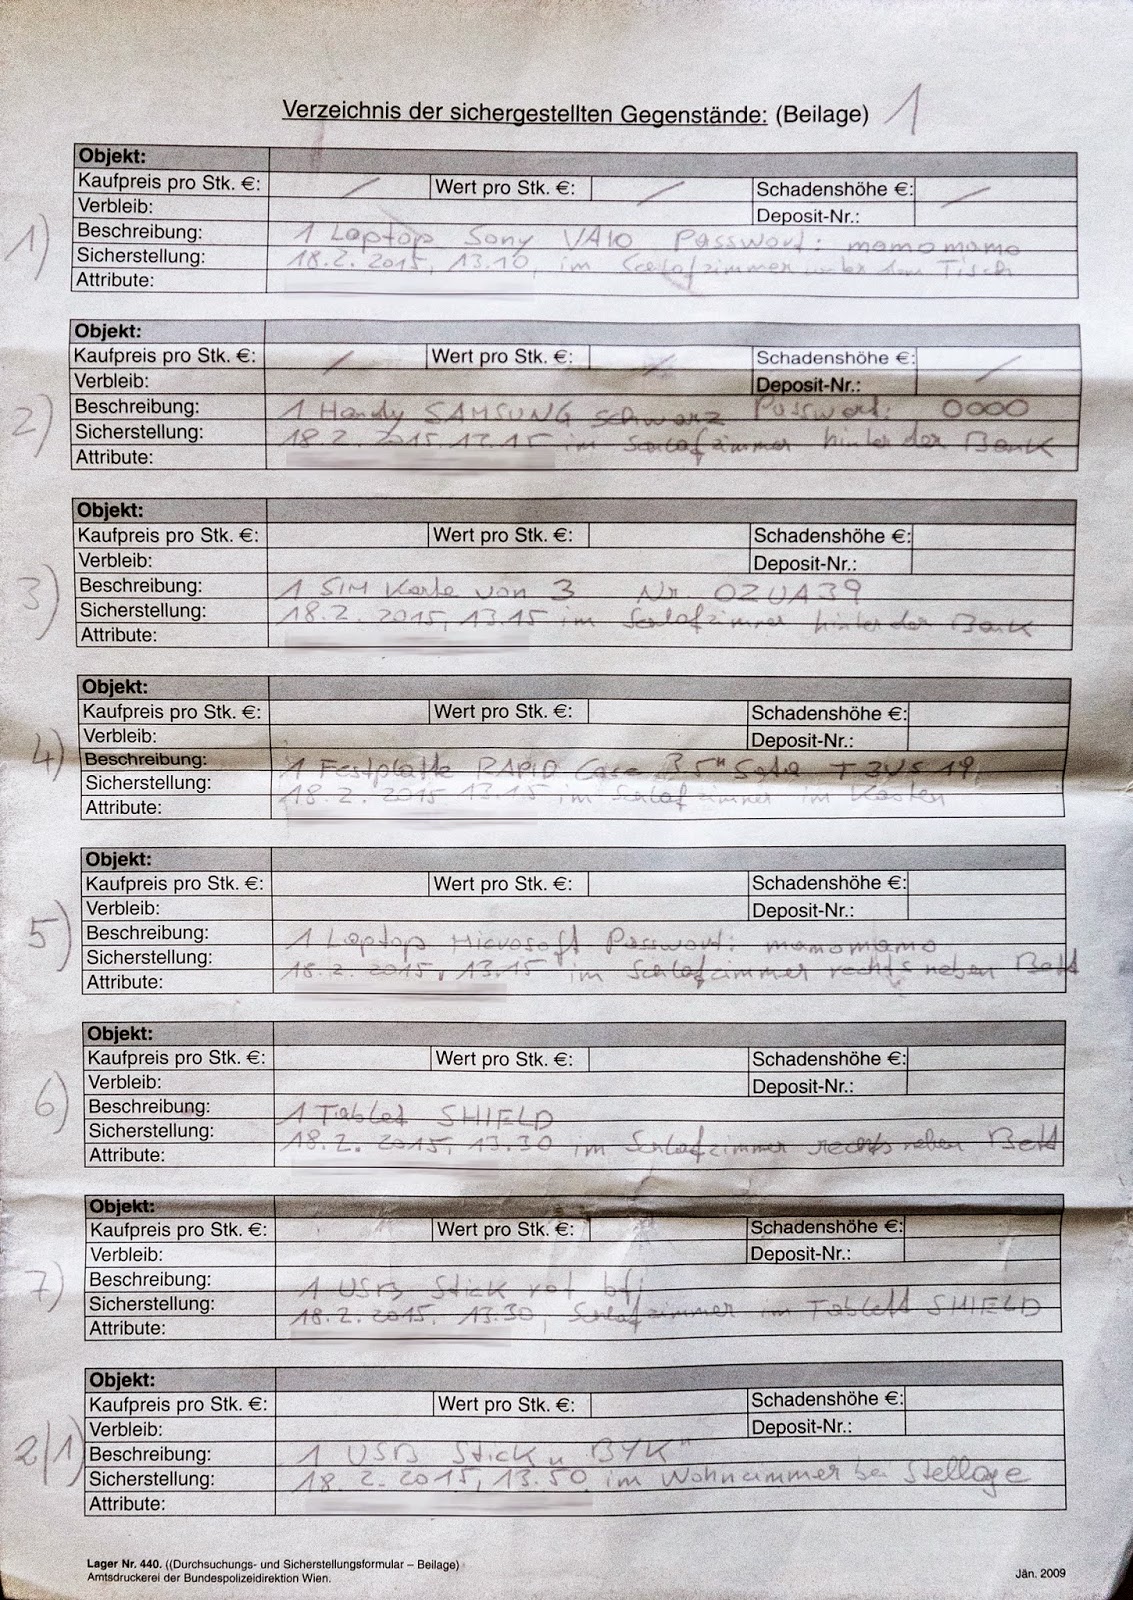 Verzeichnis der sichergestellten Gegenstände: (Beilage) 1
Objekt:
Kaufpreis pro Stk. €: / Wert pro Stk. €: / Schadenshöhe €: /
Verbleib: Deposit-Nr.:
1) Beschreibung: 1 Laptop Sony VAIO Passwort: momomomo
Sicherstellung: 18.2.2015, 13.10, im Schlafzimmer dem Tisch
Attribute:
Objekt:
Kaufpreis pro Stk. €: / Wert pro Stk. €: / Schadenshöhe €: /
Verbleib: Deposit-Nr.:
2) Beschreibung: 1 Handy SAMSUNG schwarz Passwort: 0000
Sicherstellung: 18.2.2015 13.15 im Schlafzimmer hinter der Bank
Attribute:
Objekt:
Kaufpreis pro Stk. €: Wert pro Stk. €: Schadenshöhe €:
Verbleib: Deposit-Nr.:
3) Beschreibung: 1 SIM Karte von 3 Nr. OZUA39
Sicherstellung: 18.2.2015, 13.15 im Schlafzimmer hinter der Bank
Attribute:
Objekt:
Kaufpreis pro Stk. €: Wert pro Stk. €: Schadenshöhe €:
Verbleib: Deposit-Nr.:
4) Beschreibung: 1 Festplatte RAPID Case 3.5" Sata
Sicherstellung: 18.2.2015 13.15 im Schlafzimmer im Kasten
Attribute:
Objekt:
Kaufpreis pro Stk. €: Wert pro Stk. €: Schadenshöhe €:
Verbleib: Deposit-Nr.:
5) Beschreibung: 1 Laptop Microsoft Passwort: momomomo
Sicherstellung: 18.2.2015, 13.15 im Schlafzimmer rechts neben Bett
Attribute:
Objekt:
Kaufpreis pro Stk. €: Wert pro Stk. €: Schadenshöhe €:
Verbleib: Deposit-Nr.:
6) Beschreibung: 1 Tablet SHIELD
Sicherstellung: 18.2.2015, 13.30 im Schlafzimmer rechts neben Bett
Attribute:
Objekt:
Kaufpreis pro Stk. €: Wert pro Stk. €: Schadenshöhe €:
Verbleib: Deposit-Nr.:
7) Beschreibung: 1 USB Stick rot bfi
Sicherstellung: 18.2.2015, 13.30, Schlafzimmer im Tablett SHIELD
Attribute:
Objekt:
Kaufpreis pro Stk. €: Wert pro Stk. €: Schadenshöhe €:
Verbleib: Deposit-Nr.:
2/1) Beschreibung: 1 USB Stick „BYK"
Sicherstellung: 18.2.2015, 13.50 im Wohnzimmer bei Stellage
Attribute:
Lager Nr. 440. ((Durchsuchungs- und Sicherstellungsformular – Beilage)
Amtsdruckerei der Bundespolizeidirektion Wien.
Jän. 2009